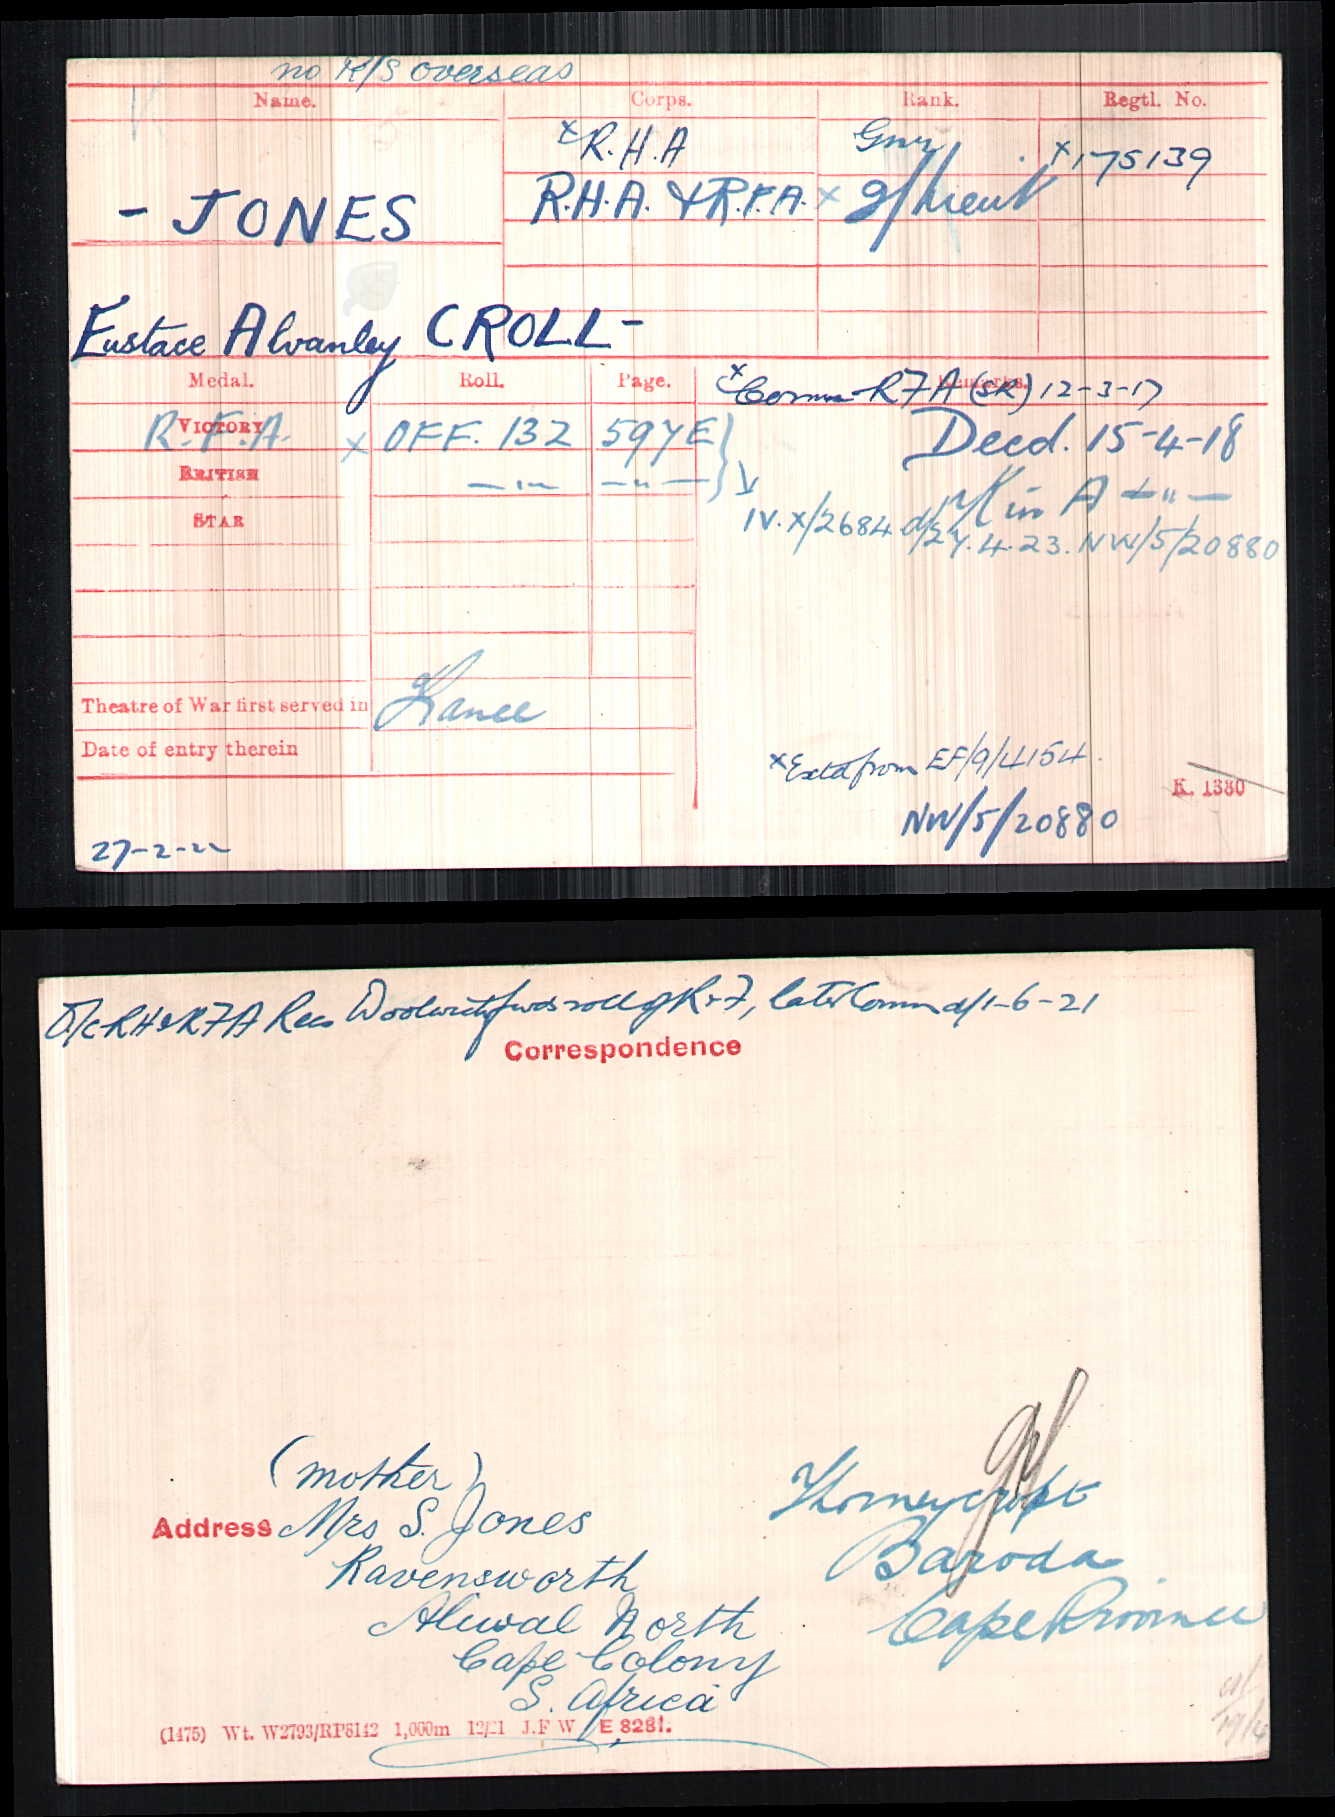 no R/S overseas
Name. Corps. Rank. Regtl. No.
x R.H.A Gnr x 175139
- JONES R.H.A. & R.F.A. x 2/Lieut
Eustace Alvanley CROLL -
Medal. Roll. Page. Remarks.
x Comm R F A (SR) 12-3-17
VICTORY R.F.A. x OFF. 132 597E } Decd. 15-4-18
BRITISH -"- -"- K in A -"-
STAR IV. X/2684 d/27.4.23. NW/5/20880
Theatre of War first served in France
Date of entry therein
x Extd from EF/9/4154.
K. 1380
NW/5/20880
27-2-22
O/c RH & RFA Recs Woolwich fwds roll of R & F, later Comm d/1-6-21
Correspondence
(mother)
Address Mrs S. Jones
Ravensworth
Aliwal North
Cape Colony
S. Africa
Thorneycroft
Baroda
Cape Province
(1475) Wt. W2793/RP6142 1,000m 12/21 J.F.W. E 8281.